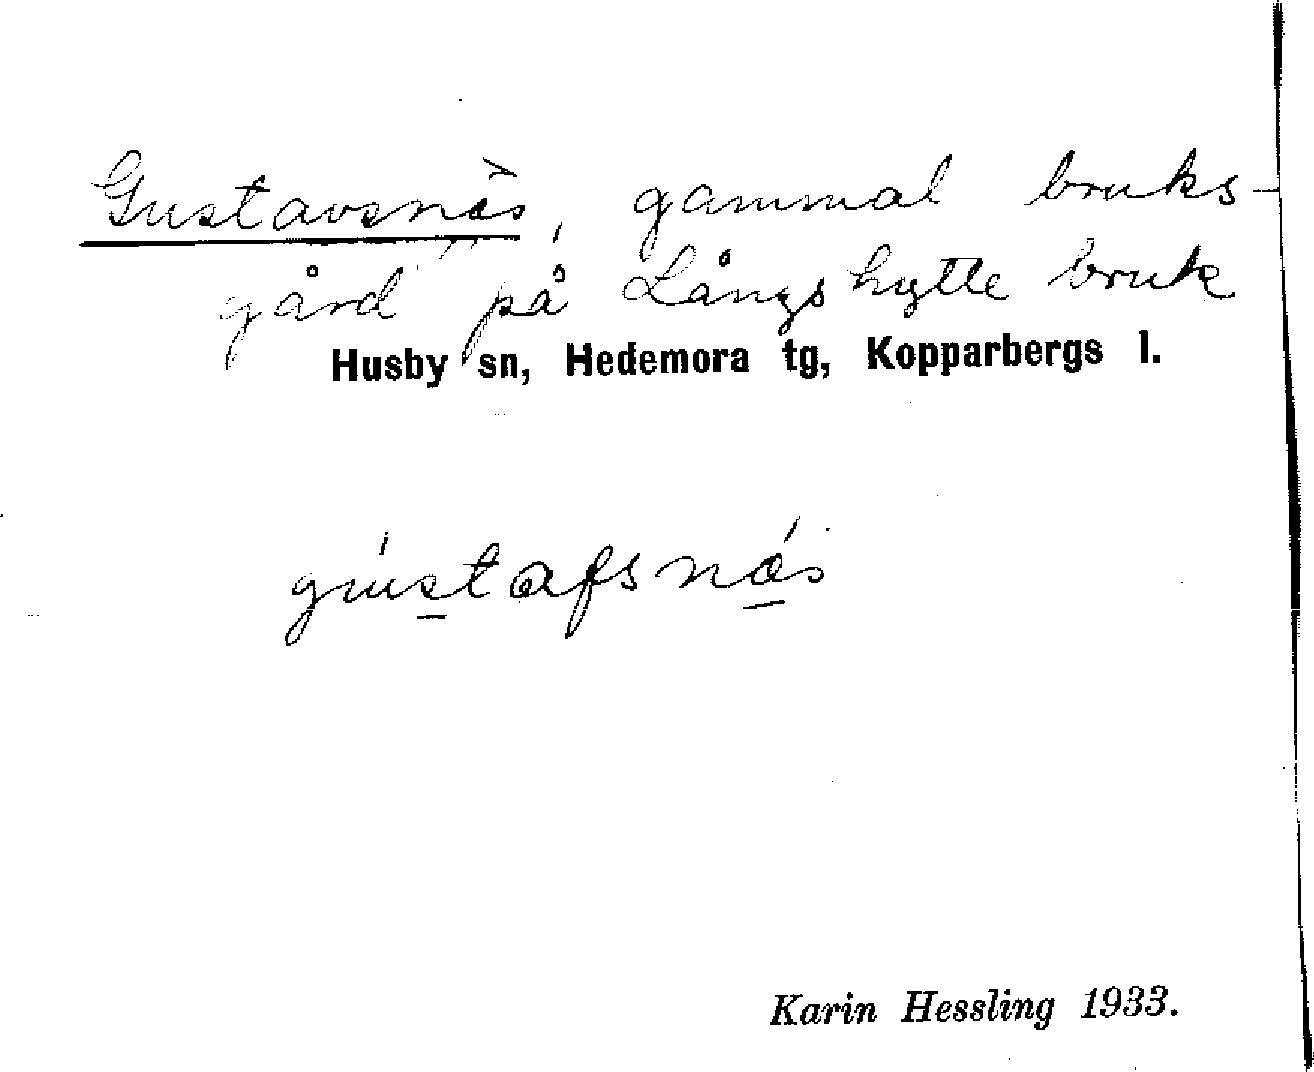 Gustavsnäs, gammal bruks-
gård på Långshytte bruk
Husby sn, Hedemora tg, Kopparbergs l.
gustafsnäs
Karin Hessling 1933.